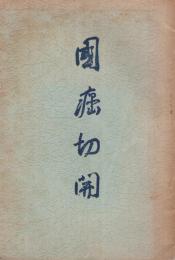 國癌切開